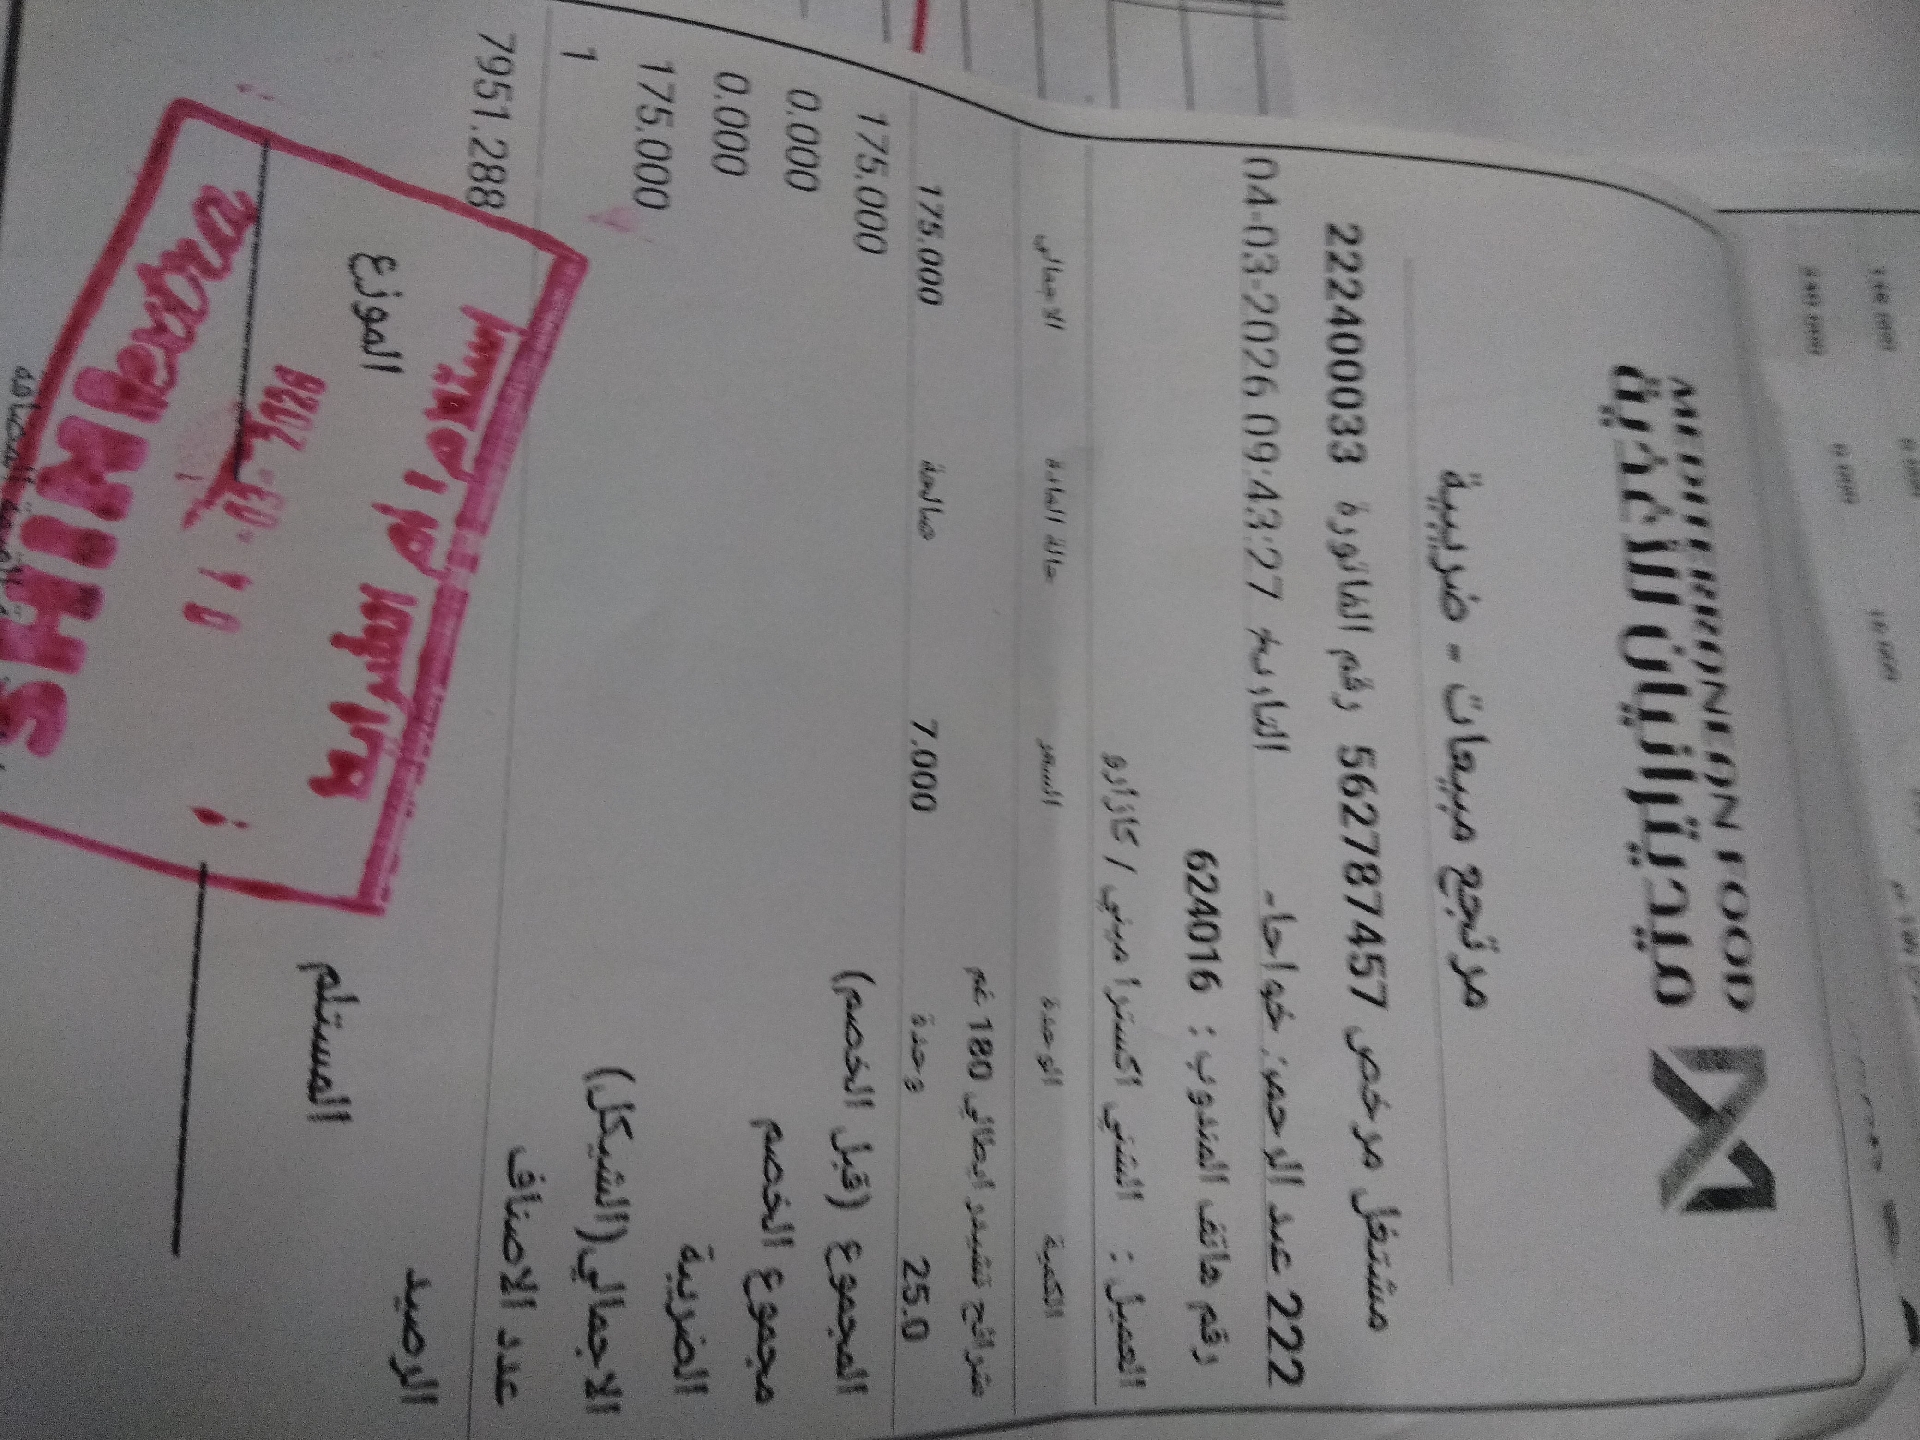 MEDITERRONEAN FOOD
ميديترانيان للأغذية
مرتجع مبيعات - ضريبية
مشتغل مرخص 562787457 رقم الفاتورة 222400033
222 عبد الرحمن خواجا- التاريخ 04-03-2026 09:43:27
رقم هاتف المندوب : 624016
العميل : الشني اكسترا ميني / كازارو
الكمية الوحدة السعر حالة المادة الاجمالي
شرائح تشيدر ايطالي 180 غم
25.0 وحدة 7.000 صالحة 175.000
المجموع (قبل الخصم) 175.000
مجموع الخصم 0.000
الضريبة 0.000
الاجمالي(الشيكل) 175.000
عدد الاصناف 1
الرصيد 7951.288
المستلم الموزع
SHINI extra